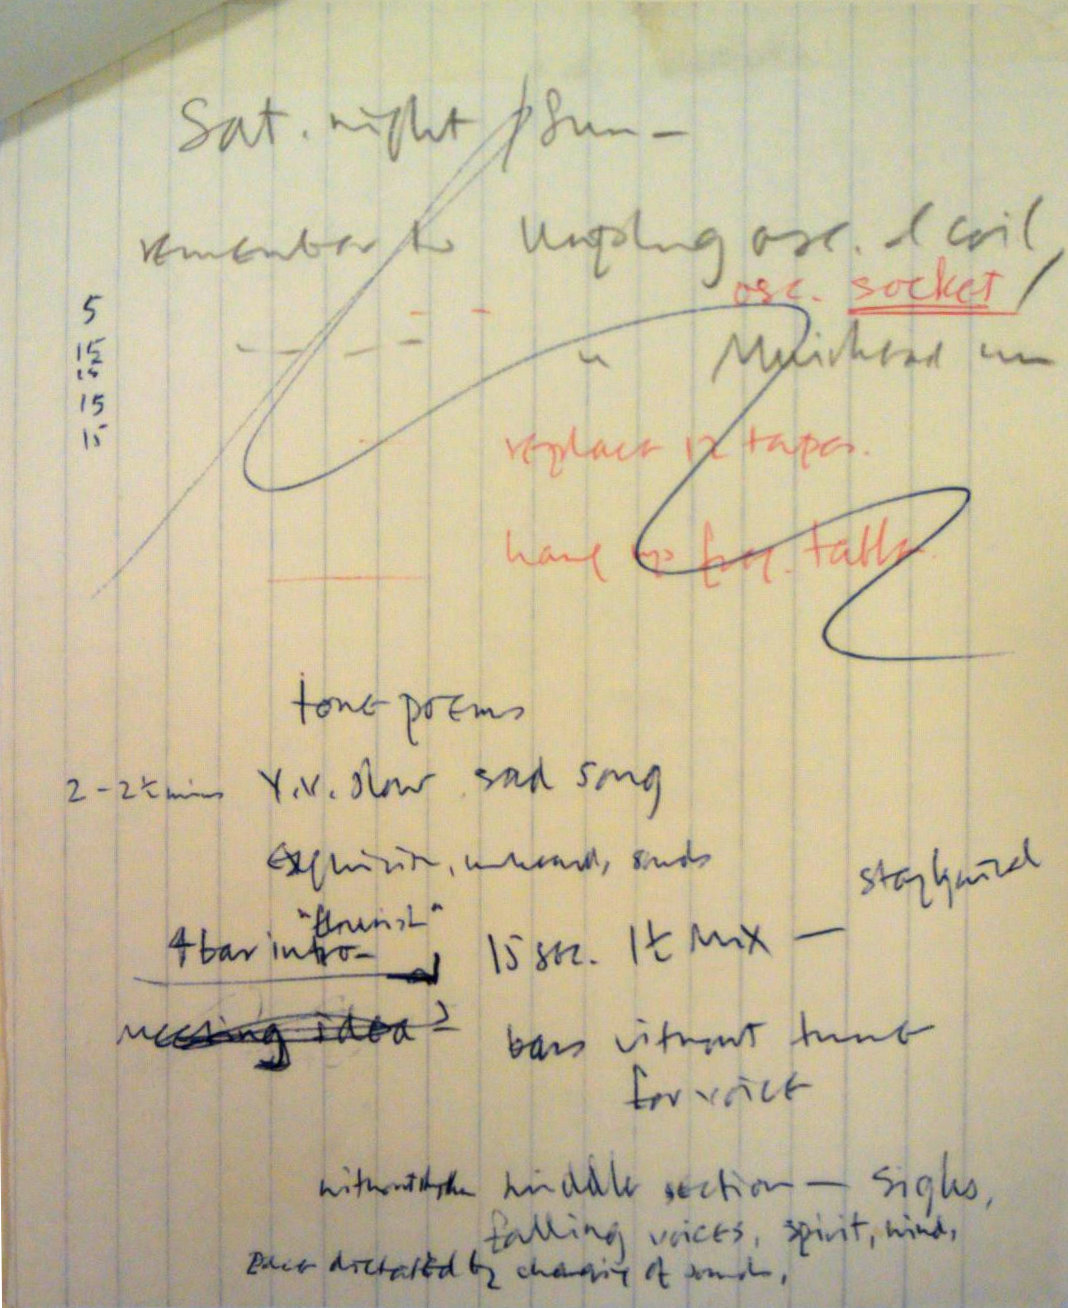 Sat. night / Sun —
remember to Unplug osc. & coil
osc. socket /
" Muirhead
5
15
15
15
15
replace 12 tapes.
hang up freq. table.
tone poems
2 - 2½ mins v.v. slow sad song
exquisite, unheard, sounds
stayquiet
"flourish"
4 bar intro - 15 sec. 1½ MIX —
idea ?
bars without tune
for voice
without rhythm middle section — sighs,
falling voices, spirit, wind,
Pace dictated by changing of sounds,